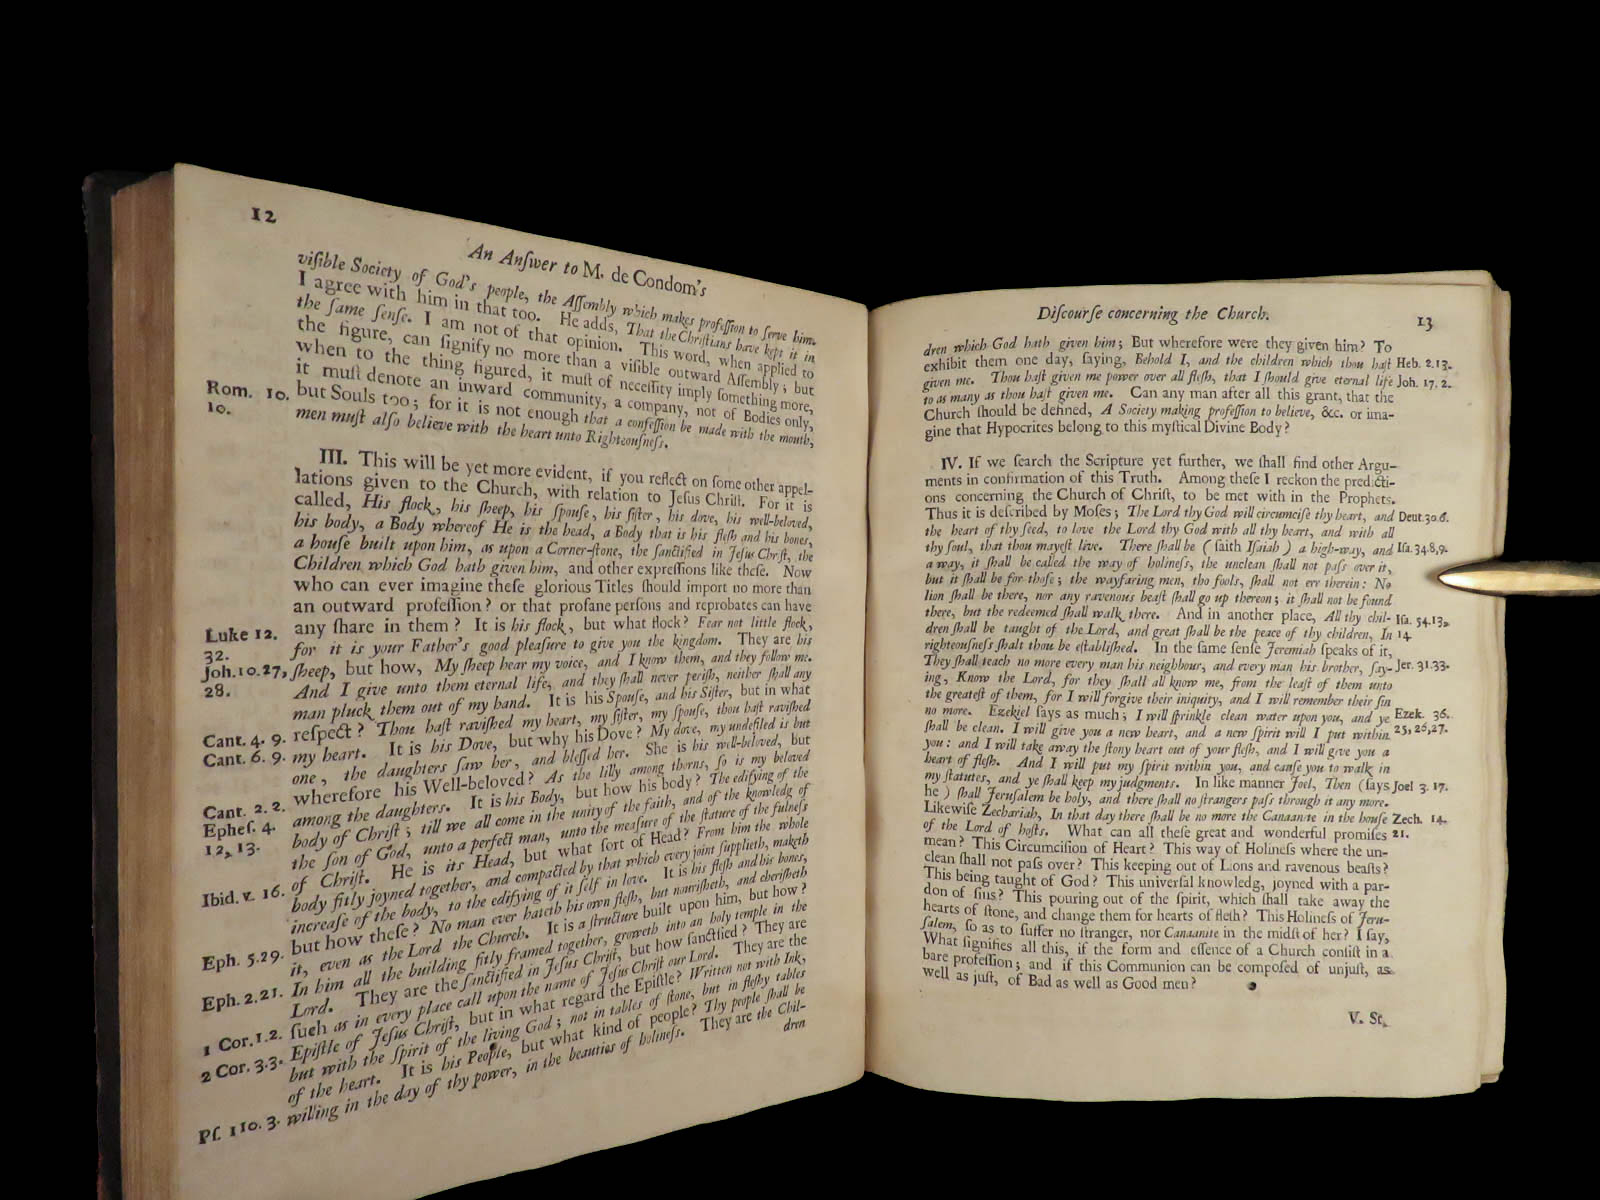 12
An Anſwer to M. de Condom's
viſible Society of God's people, the Aſſembly which makes profeſſion to ſerve him.
I agree with him in that too. He adds, That the Chriſtians have kept it in
the ſame ſenſe. I am not of that opinion. This word, when applied to
the figure, can ſignify no more than a viſible outward Aſſembly; but
when to the thing figured, it muſt of neceſſity imply ſomething more,
it muſt denote an inward community, a company, not of Bodies only,
Rom. 10. but Souls too; for it is not enough that a confeſſion be made with the mouth,
10. men muſt alſo believe with the heart unto Righteouſneſs.
III. This will be yet more evident, if you reflect on ſome other appel-
lations given to the Church, with relation to Jeſus Chriſt. For it is
called, His flock, his ſheep, his ſpouſe, his ſiſter, his dove, his well-beloved,
his body, a Body whereof He is the head, a Body that is his fleſh and his bones,
a houſe built upon him, as upon a Corner-ſtone, the ſanctified in Jeſus Chriſt, the
Children which God hath given him, and other expreſſions like theſe. Now
who can ever imagine theſe glorious Titles ſhould import no more than
an outward profeſſion? or that profane perſons and reprobates can have
any ſhare in them? It is his flock, but what flock? Fear not little flock,
Luke 12. for it is your Father's good pleaſure to give you the kingdom. They are his
32.
Joh. 10. 27, ſheep, but how, My ſheep hear my voice, and I know them, and they follow me.
28. And I give unto them eternal life, and they ſhall never periſh, neither ſhall any
man pluck them out of my hand. It is his Spouſe, and his Siſter, but in what
Cant. 4. 9. reſpect? Thou haſt raviſhed my heart, my ſiſter, my ſpouſe, thou haſt raviſhed
Cant. 6. 9. my heart. It is his Dove, but why his Dove? My dove, my undefiled is but
one, the daughters ſaw her, and bleſſed her. She is his well-beloved, but
wherefore his Well-beloved? As the lilly among thorns, ſo is my beloved
Cant. 2. 2. among the daughters. It is his Body, but how his body? The edifying of the
Epheſ. 4. body of Chriſt; till we all come in the unity of the faith, and of the knowledg of
12, 13. the ſon of God, unto a perfect man, unto the meaſure of the ſtature of the fulneſs
of Chriſt. He is its Head, but what ſort of Head? From him the whole
Ibid. v. 16. body fitly joyned together, and compacted by that which every joint ſupplieth, maketh
increaſe of the body, to the edifying of it ſelf in love. It is his fleſh and his bones,
but how theſe? No man ever hateth his own fleſh, but nouriſheth, and cheriſheth
Eph. 5. 29. it, even as the Lord the Church. It is a ſtructure built upon him, but how?
Eph. 2. 21. In him all the building fitly framed together, groweth into an holy temple in the
Lord. They are the ſanctified in Jeſus Chriſt, but how ſanctified? They are
1 Cor. 1. 2. ſuch as in every place call upon the name of Jeſus Chriſt our Lord. They are the
2 Cor. 3. 3. Epiſtle of Jeſus Chriſt, but in what regard the Epiſtle? Written not with Ink,
but with the ſpirit of the living God; not in tables of ſtone, but in fleſhy tables
of the heart. It is his People, but what kind of people? Thy people ſhall be
Pſ. 110. 3. willing in the day of thy power, in the beauties of holineſs. They are the Chil-
dren
Diſcourſe concerning the Church. 13
dren which God hath given him; But wherefore were they given him? To
exhibit them one day, ſaying, Behold I, and the children which thou haſt Heb. 2. 13.
given me. Thou haſt given me power over all fleſh, that I ſhould give eternal life Joh. 17. 2.
to as many as thou haſt given me. Can any man after all this grant, that the
Church ſhould be defined, A Society making profeſſion to believe, &c. or ima-
gine that Hypocrites belong to this myſtical Divine Body?
IV. If we ſearch the Scripture yet further, we ſhall find other Argu-
ments in confirmation of this Truth. Among theſe I reckon the predicti-
ons concerning the Church of Chriſt, to be met with in the Prophets.
Thus it is deſcribed by Moſes; The Lord thy God will circumciſe thy heart, and Deut. 30. 6.
the heart of thy ſeed, to love the Lord thy God with all thy heart, and with all
thy ſoul, that thou mayeſt live. There ſhall be (ſaith Iſaiah) a high-way, and Iſa. 34. 8, 9.
a way, it ſhall be called the way of holineſs, the unclean ſhall not paſs over it,
but it ſhall be for thoſe; the wayfaring men, tho fools, ſhall not err therein: No
lion ſhall be there, nor any ravenous beaſt ſhall go up thereon; it ſhall not be found
there, but the redeemed ſhall walk there. And in another place, All thy chil- Iſa. 54. 13,
dren ſhall be taught of the Lord, and great ſhall be the peace of thy children, In 14.
righteouſneſs ſhalt thou be eſtabliſhed. In the ſame ſenſe Jeremiah ſpeaks of it,
They ſhall teach no more every man his neighbour, and every man his brother, ſay- Jer. 31. 33.
ing, Know the Lord, for they ſhall all know me, from the leaſt of them unto
the greateſt of them, for I will forgive their iniquity, and I will remember their ſin
no more. Ezekiel ſays as much; I will ſprinkle clean water upon you, and ye Ezek. 36.
ſhall be clean. I will give you a new heart, and a new ſpirit will I put within 25, 26, 27.
you: and I will take away the ſtony heart out of your fleſh, and I will give you a
heart of fleſh. And I will put my ſpirit within you, and cauſe you to walk in
my ſtatutes, and ye ſhall keep my judgments. In like manner Joel, Then (ſays Joel 3. 17.
he) ſhall Jeruſalem be holy, and there ſhall no ſtrangers paſs through it any more.
Likewiſe Zechariah, In that day there ſhall be no more the Canaanite in the houſe Zech. 14.
of the Lord of hoſts. What can all theſe great and wonderful promiſes 21.
mean? This Circumciſion of Heart? This way of Holineſs where the un-
clean ſhall not paſs over? This keeping out of Lions and ravenous beaſts?
This being taught of God? This univerſal knowledg, joyned with a par-
don of ſins? This pouring out of the ſpirit, which ſhall take away the
hearts of ſtone, and change them for hearts of fleſh? This Holineſs of Jeru-
ſalem, ſo as to ſuffer no ſtranger, nor Canaanite in the midſt of her? I ſay,
What ſignifies all this, if the form and eſſence of a Church conſiſt in a
bare profeſſion; and if this Communion can be compoſed of unjuſt, as
well as juſt, of Bad as well as Good men?
V. St.